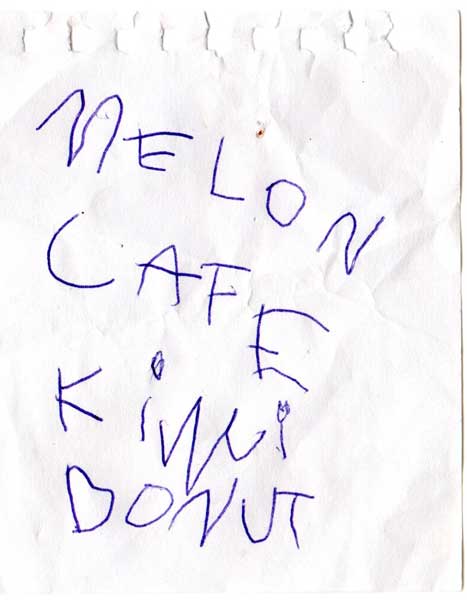 MELON
CAFE
KiWi
DONUT